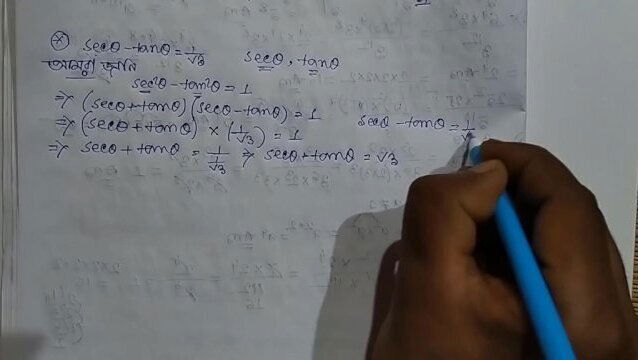 (*) secθ - tanθ = 1/√3 secθ, tanθ
আমরা জানি
sec²θ - tan²θ = 1
⇒ (secθ + tanθ) (secθ - tanθ) = 1
⇒ (secθ + tanθ) × (1/√3) = 1 secθ - tanθ = 1/√3
⇒ secθ + tanθ = 1/(1/√3) ⇒ secθ + tanθ = √3